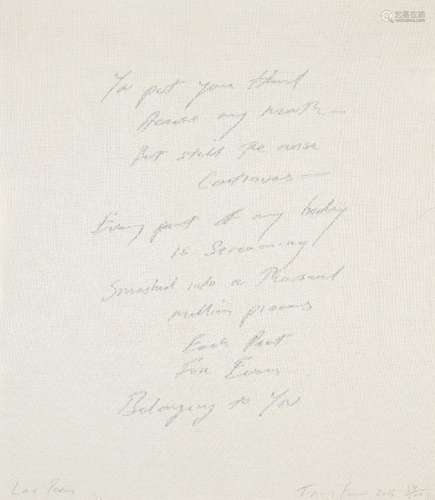 You put your Hand
Across my mouth —
But still the noise
Continues —
Every part of my body
is Screaming
Smashed into a Thousand
million pieces
Each Part
For Ever
Belonging to You
Love Poem
Tracey Emin